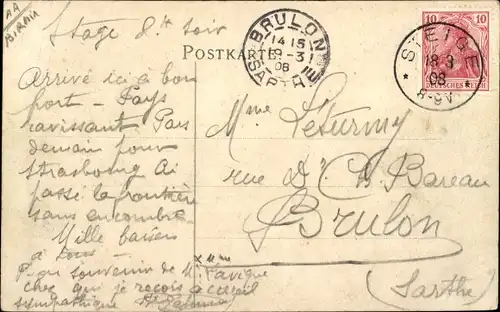 Stage d'
POSTKARTE
BRULON
14 15
19-3
08
SARTHE
10 10
DEUTSCHES REICH
STEIGE
18 3
08
8-9V
Arrivé ici a bon
port - Pays
ravissant Pars
demain pour
Strasbourg Ai
passé la frontière
sans encombre
Mille baisers
à tous
Mme Leturmy
rue d'
Brulon
(Sarthe)
souvenir de M. Favigue
chez qui je reçois accueil
sympathique